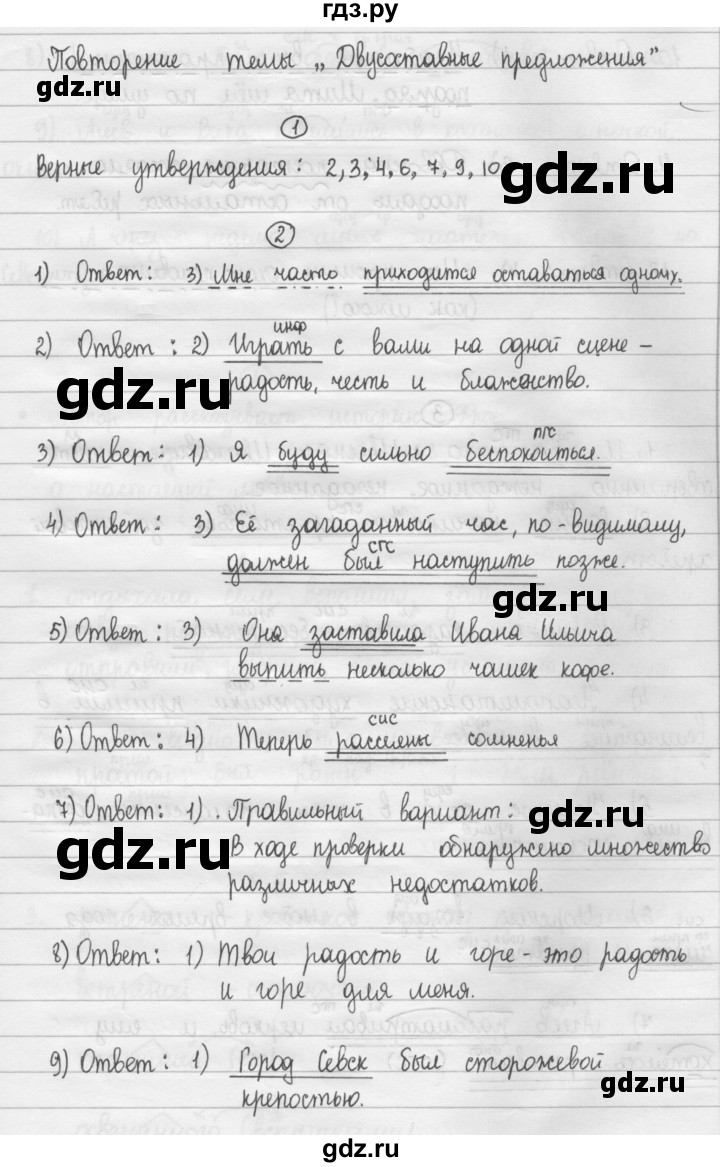 гдз.ру
Повторение темы „Двусоставные предложения"
gdz.ru
1
Верные утверждения: 2, 3, 4, 6, 7, 9, 10
gdz.ru
2
1) Ответ: 3) Мне часто приходится оставаться одному.
2) Ответ: 2) Играть с вами на одной сцене –
инф
gdz.ru
радость, честь и блаженство.
3) Ответ: 1) Я буду сильно беспокоиться.
пгс
4) Ответ: 3) Её загаданный час, по-видимому,
должен был наступить позже.
сгс
gdz.ru
5) Ответ: 3) Она заставила Ивана Ильича
выпить несколько чашек кофе.
6) Ответ: 4) Теперь рассеяны сомненья
сис
7) Ответ: 1). Правильный вариант:
gdz.ru
В ходе проверки обнаружено множество
gdz.ru
различных недостатков.
8) Ответ: 1) Твои радость и горе - это радость
и горе для меня.
9) Ответ: 1) Город Севск был сторожевой
gdz.ru
крепостью.
gdz.ru